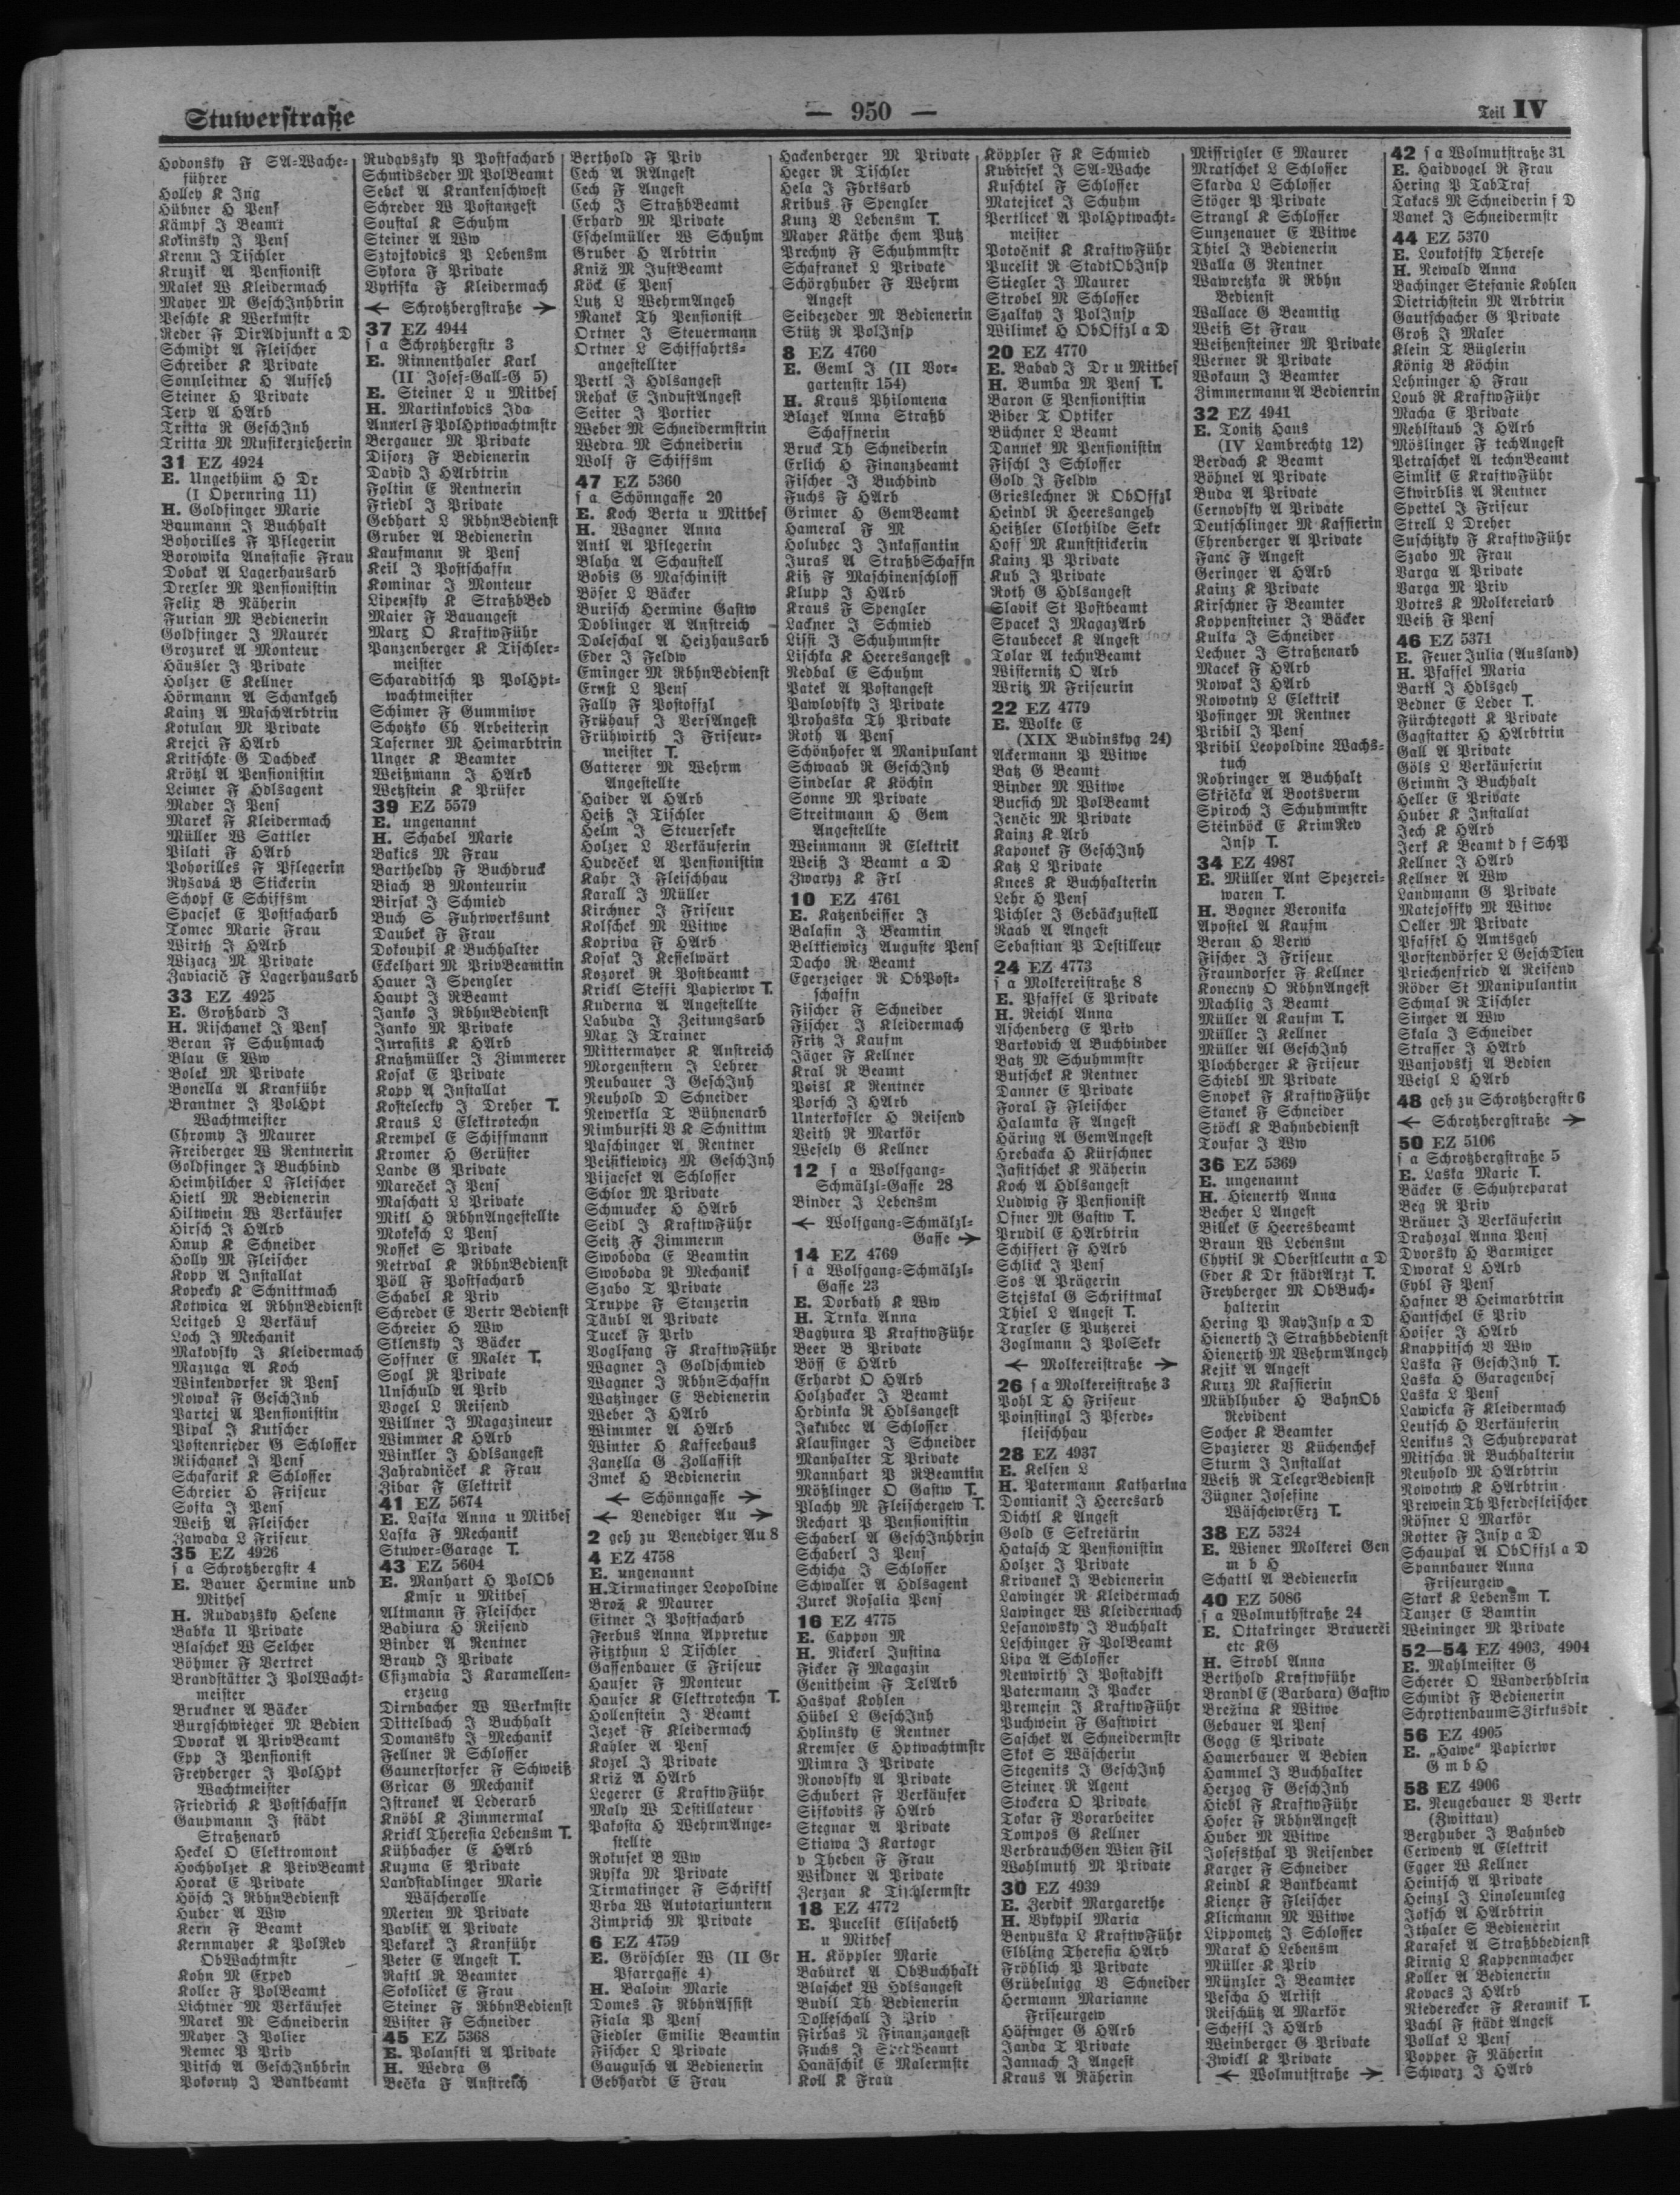 Stuwerstraße
— 950 —
Teil IV
Hodonsky F SA-Wache-
führer
Holley K Ing
Hübner H Pens
Kämpf J Beamt
Kolinsky J Pens
Krenn J Tischler
Kruzik A Pensionist
Malek W Kleidermach
Mayer M GeschInhbrin
Peschke K Werkmstr
Reder F DirAdjunkt a D
Schmidt A Fleischer
Schreiber K Private
Sonnleitner H Aufseh
Steiner H Private
Terp A HArb
Tritta R GeschInh
Tritta M Musikerzieherin
31 EZ 4924
E. Ungethüm H Dr
(I Opernring 11)
H. Goldfinger Marie
Baumann J Buchhalt
Bohorilles F Pflegerin
Borowika Anastasie Frau
Dobak A Lagerhausarb
Drexler M Pensionistin
Felix B Näherin
Furian M Bedienerin
Goldfinger J Maurer
Grozurek A Monteur
Häusler J Private
Holzer E Kellner
Hörmann A Schankgeh
Kainz A MaschArbtrin
Kotulan M Private
Krejci F HArb
Kritschke G Dachdeck
Krötzl A Pensionistin
Leimer F Hdlsagent
Mader J Pens
Marek F Kleidermach
Müller W Sattler
Pilati F HArb
Pohorilles F Pflegerin
Ryšavá B Stickerin
Schopf E Schiffsm
Spacsek E Postfacharb
Tomec Marie Frau
Wirth J HArb
Wizacz M Private
Zaviacič F Lagerhausarb
33 EZ 4925
E. Großbard J
H. Rischanek J Pens
Beran F Schuhmach
Blau E Ww
Bolek M Private
Bonella A Kranführ
Brantner J PolHpt
Wachtmeister
Chromy J Maurer
Freiberger W Rentnerin
Goldfinger J Buchbind
Heimhilcher L Fleischer
Hietl M Bedienerin
Hiltwein W Verkäufer
Hirsch J HArb
Hnup K Schneider
Holly M Fleischer
Kopp A Installat
Kopecky K Schnittmach
Kotwica A RbhnBedienst
Leitgeb L Verkäuf
Loch J Mechanik
Makovsky J Kleidermach
Mazuga A Koch
Winkendorfer R Pens
Nowak F GeschInh
Partej A Pensionistin
Pipal J Kutscher
Postenrieder G Schlosser
Rischanek J Pens
Schafarik K Schlosser
Schreier H Friseur
Sofka J Pens
Weiß A Fleischer
Zawada L Friseur
35 EZ 4926
s a Schrotzbergstr 4
E. Bauer Hermine und
Mitbes
H. Rudavzsky Helene
Babka U Private
Blaschek W Selcher
Böhmer F Vertret
Brandstätter J PolWacht-
meister
Bruckner A Bäcker
Burgschwieger M Bedien
Dvorak A PrivBeamt
Epp J Pensionist
Freyberger J PolHpt
Wachtmeister
Friedrich K Postschaffn
Gaupmann J städt
Straßenarb
Heckel O Elektromont
Hochholzer K PrivBeamt
Horak E Private
Hösch J RbhnBedienst
Huber A Ww
Kern F Beamt
Kernmayer K PolRev
ObWachtmstr
Kohn M Exped
Koller F PolBeamt
Lichtner M Verkäufer
Marek M Schneiderin
Mayer J Polier
Nemec P Priv
Pitsch A GeschInhbrin
Pokorny J Bankbeamt
Rudavszky P Postfacharb
Schmidseder M PolBeamt
Sebek A Krankenschwest
Schreder W Postangest
Soustal K Schuhm
Steiner A Ww
Sztojkovics P Lebensm
Sykora F Private
Vytiska F Kleidermach
← Schrotzbergstraße →
37 EZ 4944
s a Schrotzbergstr 3
E. Rinnenthaler Karl
(II Josef-Gall-G 5)
E. Steiner L u Mitbes
H. Martinkovics Ida
Annerl F PolHptwachtmstr
Bergauer M Private
Disorz F Bedienerin
David J HArbtrin
Foltin E Rentnerin
Friedl J Private
Gebhart L RbhnBedienst
Gruber A Bedienerin
Kaufmann R Pens
Keil J Postschaffn
Kominar J Monteur
Lipensky K StraßbBed
Maier F Bauangest
Marx O KraftwFühr
Panzenberger K Tischler-
meister
Scharaditsch P PolHpt-
wachtmeister
Schimer F Gummiwr
Schotzko Ch Arbeiterin
Taferner M Heimarbtrin
Unger K Beamter
Weißmann J HArb
Wetzstein K Prüfer
39 EZ 5579
E. ungenannt
H. Schabel Marie
Bakics M Frau
Bartheldy F Buchdruck
Biach B Monteurin
Birsak J Schmied
Buch S Fuhrwerksunt
Daubek F Frau
Dokoupil K Buchhalter
Eckelhart M PrivBeamtin
Hauer J Spengler
Haupt J RBeamt
Janko J RbhnBedienst
Janko M Private
Jurasits K HArb
Knaßmüller J Zimmerer
Kosak E Private
Kopp A Installat
Kostelecky J Dreher T.
Kraus L Elektrotechn
Krempel E Schiffmann
Kromer H Gerüster
Lande G Private
Mareček J Pens
Maschatt L Private
Mikl H RbhnAngestellte
Mokesch L Pens
Rossek S Private
Netrval K RbhnBedienst
Pöll F Postfacharb
Schabel K Priv
Schreder E Vertr Bedienst
Schreier H Ww
Sklensky J Bäcker
Soffner E Maler T.
Sogl R Private
Unschuld A Priv
Vogel L Reisend
Willner J Magazineur
Wimmer K HArb
Winkler J Hdlsangest
Zahradniček K Frau
Zibar F Elektrik
41 EZ 5674
E. Laska Anna u Mitbes
Laska F Mechanik
Stuwer-Garage T.
43 EZ 5604
E. Manhart H PolOb
Kmsr u Mitbes
Altmann F Fleischer
Badjura H Reisend
Binder A Rentner
Brand J Private
Csizmadia J Karamellen-
erzeug
Dirnbacher W Werkmstr
Dittelbach J Buchhalt
Domansky J Mechanik
Fellner R Schlosser
Gaunerstorfer F Schweiß
Gricar G Mechanik
Istranek A Lederarb
Knöbl K Zimmermal
Krickl Theresia Lebensm T.
Kühbacher E HArb
Kuzma E Private
Landstadlinger Marie
Wäscherolle
Merten M Private
Pavlik A Private
Pekarek J Kranführ
Peter E Angest T.
Rastl R Beamter
Sokoliček E Frau
Steiner F RbhnBedienst
Wister F Schneider
45 EZ 5368
E. Polanski A Private
H. Wedra G
Bečka F Anstreich
Berthold F Priv
Cech A RAngest
Cech F Angest
Cech J StraßbBeamt
Erhard M Private
Eschelmüller W Schuhm
Gruber H Arbtrin
Kniž M JustBeamt
Köck E Pens
Lutz L WehrmAngeh
Manek Th Pensionist
Ortner J Steuermann
Ortner L Schiffahrts-
angestellter
Pertl J Hdlsangest
Rehak E IndustAngest
Seiter J Portier
Weber M Schneidermstrin
Wedra M Schneiderin
Wolf F Schiffsm
47 EZ 5360
s a Schönngasse 20
E. Koch Berta u Mitbes
H. Wagner Anna
Antl A Pflegerin
Blaha A Schaustell
Bobis G Maschinist
Böser L Bäcker
Burisch Hermine Gastw
Doblinger A Anstreich
Doleschal A Heizhausarb
Eder J Feldw
Eminger M RbhnBedienst
Ernst L Pens
Fally F Postoffzl
Frühauf J VersAngest
Frühwirth J Friseur-
meister T.
Gatterer M Wehrm
Angestellte
Haider A HArb
Heiß J Tischler
Helm J Steuersekr
Holzer L Verkäuferin
Hudeček A Pensionistin
Kahr J Fleischhau
Karall J Müller
Kirchner J Friseur
Kolschek M Witwe
Kopriva F HArb
Kosak J Kesselwärt
Kozorek R Postbeamt
Krickl Steffi Papierwr T.
Kuderna A Angestellte
Labuda J Zeitungsarb
Max J Trainer
Mittermayer K Anstreich
Morgenstern J Lehrer
Neubauer J GeschInh
Neuhold D Schneider
Newerkla T Bühnenarb
Nimburski V K Schnittm
Paschinger A Rentner
Peisikiewicz M GeschInh
Pijacsek A Schlosser
Schlor M Private
Schmucker H HArb
Seidl J KraftwFühr
Seitz F Zimmerm
Swoboda E Beamtin
Swoboda R Mechanik
Szabo T Private
Truppe F Stanzerin
Täubl A Private
Tucek F Priv
Voglsang F KraftwFühr
Wagner J Goldschmied
Wagner J RbhnSchaffn
Watzinger E Bedienerin
Weber J HArb
Wimmer A HArb
Winter H Kaffeehaus
Zanella G Zollassist
Zmek H Bedienerin
← Schönngasse →
← Venediger Au →
2 geh zu Venediger Au 8
4 EZ 4758
E. ungenannt
H. Tirmatinger Leopoldine
Brož K Maurer
Eitner J Postfacharb
Ferbus Anna Appretur
Fitzthun L Tischler
Gassenbauer E Friseur
Hauser F Monteur
Hauser K Elektrotechn T.
Hollenstein J Beamt
Jezek F Kleidermach
Kahler A Pens
Kozel J Private
Križ A HArb
Legerer E KraftwFühr
Maly W Destillateur
Pakosta H WehrmAnge-
stellte
Rokusek B Ww
Ryska M Private
Tirmatinger F Schrifts
Vrba W Autotaxiuntern
Zimprich M Private
6 EZ 4759
E. Gröschler W (II Gr
Pfarrgasse 4)
H. Baloin Marie
Domes F RbhnAssist
Fiala P Pens
Fiedler Emilie Beamtin
Fischer L Private
Gaugusch A Bedienerin
Gebhardt E Frau
Hackenberger M Private
Heger R Tischler
Hela J Fbrksarb
Kribus F Spengler
Kunz V Lebensm T.
Mayer Käthe chem Putz
Prechny F Schuhmmstr
Schafranek L Private
Schörghuber F Wehrm
Angest
Seibezeder M Bedienerin
Stütz R PolInsp
8 EZ 4760
E. Geml J (II Vor-
gartenstr 154)
H. Kraus Philomena
Blazek Anna Straßb
Schaffnerin
Bruck Th Schneiderin
Erlich H Finanzbeamt
Fischer J Buchbind
Fuchs F HArb
Grimer H GemBeamt
Hameral F M
Holubec J Inkassantin
Juras A StraßbSchaffn
Kiß F Maschinenschloss
Klupp J HArb
Kraus F Spengler
Lackner J Schmied
Lissi J Schuhmmstr
Lischka K Heeresangest
Nedbal E Schuhm
Patek A Postangest
Pawlovsky J Private
Prohaska Th Private
Roth A Pens
Schönhofer A Manipulant
Schwaab R GeschInh
Sindelar K Köchin
Sonne M Private
Streitmann H Gem
Angestellte
Weinmann R Elektrik
Weiß J Beamt a D
Zwaryz K Frl
10 EZ 4761
E. Katzenbeisser J
Balasin J Beamtin
Beltkiewicz Auguste Pens
Dacho R Beamt
Egerzeiger R ObPost-
schaffn
Fischer F Schneider
Fischer J Kleidermach
Fritz J Kaufm
Jäger F Kellner
Kral R Beamt
Peisl K Rentner
Porsch J HArb
Unterkofler H Reisend
Veith R Markör
Wesely G Kellner
12 s a Wolfgang-
Schmälzl-Gasse 28
Binder J Lebensm
← Wolfgang-Schmälzl-
Gasse →
14 EZ 4769
s a Wolfgang-Schmälzl-
Gasse 23
E. Dorbath K Ww
H. Trnka Anna
Baghura P KraftwFühr
Beer B Private
Böss E HArb
Erhardt O HArb
Holzhacker J Beamt
Hrdinka R Hdlsangest
Jakubec A Schlosser
Klausinger J Schneider
Manhalter T Private
Mannhart P RBeamtin
Mößlinger O Gastw T.
Plachy M Fleischergew T.
Rechart P Pensionistin
Schaberl A GeschInhbrin
Schaberl J Pens
Schicha J Schlosser
Schwaller A Hdlsagent
Zurek Rosalia Pens
16 EZ 4775
E. Cappon M
H. Nickerl Justina
Ficker F Magazin
Genitheim F TelArb
Hasyak Kohlen
Hübel L GeschInh
Hylinsky E Rentner
Kremser E Hptwachtmstr
Mimra J Private
Ronovsky A Private
Schubert F Verkäufer
Siskovits F HArb
Stegnar A Private
Stiawa J Kartogr
v Theben F Frau
Wildner A Private
Zerzan K Tischlermstr
18 EZ 4772
E. Pucelik Elisabeth
u Mitbes
H. Köppler Marie
Baburek A ObBuchhalt
Blaschek W Hdlsangest
Budil Th Bedienerin
Dolleschall J Priv
Firbas N Finanzangest
Fuchs J Beamt
Hanäschik E Malermstr
Koll K Frau
Köppler F K Schmied
Kubitsek J SA-Wache
Kuschtel F Schlosser
Matejicek J Schuhm
Pertlicek A PolHptwacht-
meister
Potočnik K KraftwFühr
Pucelik R StadtObInsp
Stiegler J Maurer
Strobel M Schlosser
Szalkay J PolInsp
Wilimek H ObOffzl a D
20 EZ 4770
E. Babad J Dr u Mitbes
H. Bumba M Pens T.
Baron E Pensionistin
Biber T Optiker
Büchner L Beamt
Dannek M Pensionistin
Fischl J Schlosser
Gold J Feldw
Grieslechner R ObOffzl
Heindl R Heeresangeh
Heißler Clothilde Sekr
Hoff M Kunststickerin
Kainz P Private
Kub J Private
Roth G Hdlsangest
Slavik St Postbeamt
Spacek J MagazArb
Staubecek K Angest
Tolar A technBeamt
Wisternitz O Arb
Writz M Friseurin
22 EZ 4779
E. Wolke E
(XIX Budinskyg 24)
Ackermann P Witwe
Batz G Beamt
Binder M Witwe
Bucsich M PolBeamt
Jenčic M Private
Kainz K Arb
Kaponek F GeschInh
Katz L Private
Knees K Buchhalterin
Lehr H Pens
Pichler J Gebäckzustell
Raab A Angest
Sebastian P Destilleur
24 EZ 4773
s a Molkereistraße 8
E. Pfaffel E Private
H. Reichl Anna
Aschenberg E Priv
Barkovich A Buchbinder
Batz M Schuhmmstr
Butschek K Rentner
Danner E Private
Foral F Fleischer
Halamka F Angest
Häring A GemAngest
Hrebacka H Kürschner
Jasitschek K Näherin
Koch A Hdlsangest
Ludwig F Pensionist
Ofner M Gastw T.
Prudil E HArbtrin
Schiffert F HArb
Schlick J Pens
Sos A Prägerin
Stejskal G Schriftmal
Thiel L Angest T.
Traxler E Putzerei
Zoglmann J PolSekr
← Molkereistraße →
26 s a Molkereistraße 3
Pohl T H Friseur
Poinstingl J Pferde-
fleischhau
28 EZ 4937
E. Kelsen L
H. Patermann Katharina
Domianik J Heeresarb
Dichtl K Angest
Gold E Sekretärin
Hatasch T Pensionistin
Holzer J Private
Krivanek J Bedienerin
Lawinger R Kleidermach
Lawinger W Kleidermach
Lesanowsky J Buchhalt
Leschinger F PolBeamt
Lipa A Schlosser
Neuwirth J Postadjkt
Patermann J Packer
Premein J KraftwFühr
Puchwein F Gastwirt
Saschek A Schneidermstr
Skok S Wäscherin
Stegenits J GeschInh
Steiner R Agent
Stockera O Private
Tokar F Vorarbeiter
Tompos G Kellner
VerbrauchGen Wien Fil
Wohlmuth M Private
30 EZ 4939
E. Zerdik Margarethe
H. Vykypil Maria
Benyuska L KraftwFühr
Elbling Theresia HArb
Fröhlich P Private
Grübelnigg V Schneider
Hermann Marianne
Friseurgew
Häfinger G HArb
Janda T Private
Jannach J Angest
Kraus A Näherin
Missrigler E Maurer
Mratschek L Schlosser
Skarda L Schlosser
Stöger P Private
Strangl K Schlosser
Sunzenauer E Witwe
Thiel J Bedienerin
Walla G Rentner
Wawretzka R Rbhn
Bedienst
Wallace G Beamtin
Weiß St Frau
Weißensteiner M Private
Werner R Private
Wokaun J Beamter
Zimmermann A Bedienrin
32 EZ 4941
E. Tonitz Hans
(IV Lambrechtg 12)
Berdach K Beamt
Böhnel A Private
Buda A Private
Cernovsky A Private
Deutschlinger M Kassierin
Ehrenberger A Private
Fanc F Angest
Geringer A HArb
Kainz K Private
Kirschner F Beamter
Koppensteiner J Bäcker
Kulka J Schneider
Lechner J Straßenarb
Macek F HArb
Nowak J HArb
Nowotny L Elektrik
Posinger M Rentner
Pribil J Pens
Pribil Leopoldine Wachs-
tuch
Rohringer A Buchhalt
Skřička A Bootsverm
Spiroch J Schuhmmstr
Steinböck E KrimRev
Insp T.
34 EZ 4987
E. Müller Ant Spezerei-
waren T.
H. Bogner Veronika
Apostel A Kaufm
Beran H Verw
Fischer J Friseur
Fraundorfer F Kellner
Konecny O RbhnAngest
Machlig J Beamt
Müller A Kaufm T.
Müller J Kellner
Müller Al GeschInh
Plochberger K Friseur
Schiebl M Private
Snopek F KraftwFühr
Stanek F Schneider
Stöckl K Bahnbedienst
Toufar J Ww
36 EZ 5369
E. ungenannt
H. Hienerth Anna
Becher L Angest
Billek E Heeresbeamt
Braun W Lebensm
Chytil R Oberstleutn a D
Eder K Dr städtArzt T.
Freyberger M ObBuch-
halterin
Hering P RayInsp a D
Hienerth J Straßbbedienst
Hienerth M WehrmAngeh
Kejik A Angest
Kurz M Kassierin
Mühlhuber H BahnOb
Revident
Socher K Beamter
Spazierer V Küchenchef
Sturm J Installat
Weiß R TelegrBedienst
Zügner Josefine
WäschewrErz T.
38 EZ 5324
E. Wiener Molkerei Gen
m b H
Schattl A Bedienerin
40 EZ 5086
s a Wolmuthstraße 24
E. Ottakringer Brauerei
etc KG
H. Strobl Anna
Berthold Kraftwführ
Brandl E (Barbara) Gastw
Brežina K Witwe
Gebauer A Pens
Gogg E Private
Hamerbauer A Bedien
Hammel J Buchhalter
Herzog F GeschInh
Hiebl F KraftwFühr
Hofer F RbhnAngest
Huber M Witwe
Josefsthal P Reisender
Karger F Schneider
Keindl K Bankbeamt
Kiener F Fleischer
Kliemann M Witwe
Lippometz J Schlosser
Marak H Lebensm
Müller K Priv
Münzler J Beamter
Pescha H Artist
Reischütz A Markör
Scheffl J HArb
Weinberger G Private
Zwickl K Private
← Wolmutstraße →
42 s a Wolmutstraße 31
E. Haidvogel R Frau
Hering P TabTraf
Takacs M Schneiderin f D
Vanek J Schneidermstr
44 EZ 5370
E. Loukotsky Therese
H. Newald Anna
Bachinger Stefanie Kohlen
Dietrichstein M Arbtrin
Gautschacher G Private
Groß J Maler
Klein T Büglerin
König B Köchin
Lehninger H Frau
Loub R KraftwFühr
Macha E Private
Mehlstaub J HArb
Möslinger F techAngest
Petraschek A technBeamt
Simlik E KraftwFühr
Skwirblis A Rentner
Spettel J Friseur
Strell L Dreher
Suschitzky F KraftwFühr
Szabo M Frau
Varga A Private
Varga M Priv
Votres K Molkereiarb
Weiß F Pens
46 EZ 5371
E. Feuer Julia (Ausland)
H. Pfaffel Maria
Bartl J Hdlsgeh
Bedner E Leder T.
Fürchtegott K Private
Gagstatter H HArbtrin
Gall A Private
Göls L Verkäuferin
Grimm J Buchhalt
Heller E Private
Huber K Installat
Jech K HArb
Jerk K Beamt d f SchP
Kellner J HArb
Kellner A Ww
Landmann G Private
Matejoffky M Witwe
Oeller M Private
Pfaffel H Amtsgeh
Porstendörfer L GeschDien
Priechenfried A Reisend
Röder St Manipulantin
Schmal R Tischler
Singer A Ww
Skala J Schneider
Strasser J HArb
Wanjovskj A Bedien
Weigl L HArb
48 geh zu Schrotzbergstr 6
← Schrotzbergstraße →
50 EZ 5106
s a Schrotzbergstraße 5
E. Laska Marie T.
Bäcker E Schuhreparat
Beg R Priv
Bräuer J Verkäuferin
Drahozal Anna Pens
Dvorsky H Barmixer
Dworak L HArb
Eybl F Pens
Hafner B Heimarbtrin
Hantschel E Priv
Hoiser J HArb
Knappitsch V Ww
Laska F GeschInh T.
Laska H Garagenbes
Laska L Pens
Lawicka F Kleidermach
Leutsch H Verkäuferin
Lenikus J Schuhreparat
Mitscha R Buchhalterin
Neuhold M HArbtrin
Nowotny K HArbtrin
Prewein Th Pferdefleischer
Rösner L Markör
Rotter F Insp a D
Schaupal A ObOffzl a D
Spannbauer Anna
Friseurgew
Stark K Lebensm T.
Tanzer E Bamtin
Weininger M Private
52—54 EZ 4903, 4904
E. Mahlmeister G
Scherer O Wanderhdlrin
Schmidt F Bedienerin
SchrottenbaumSZirkusdir
56 EZ 4905
E. „Hawe“ Papierwr
G m b H
58 EZ 4906
E. Neugebauer V Vertr
(Zwittau)
Berghuber J Bahnbed
Cerweny A Elektrik
Egger W Kellner
Heinisch A Private
Heinzl J Linoleumleg
Joksch A HArbtrin
Ithaler S Bedienerin
Karasek A Straßbbedienst
Kirnig L Kappenmacher
Koller A Bedienerin
Kovacs J HArb
Niederecker F Keramik T.
Pachl F städt Angest
Pollak L Pens
Popper F Näherin
Schwarz J HArb